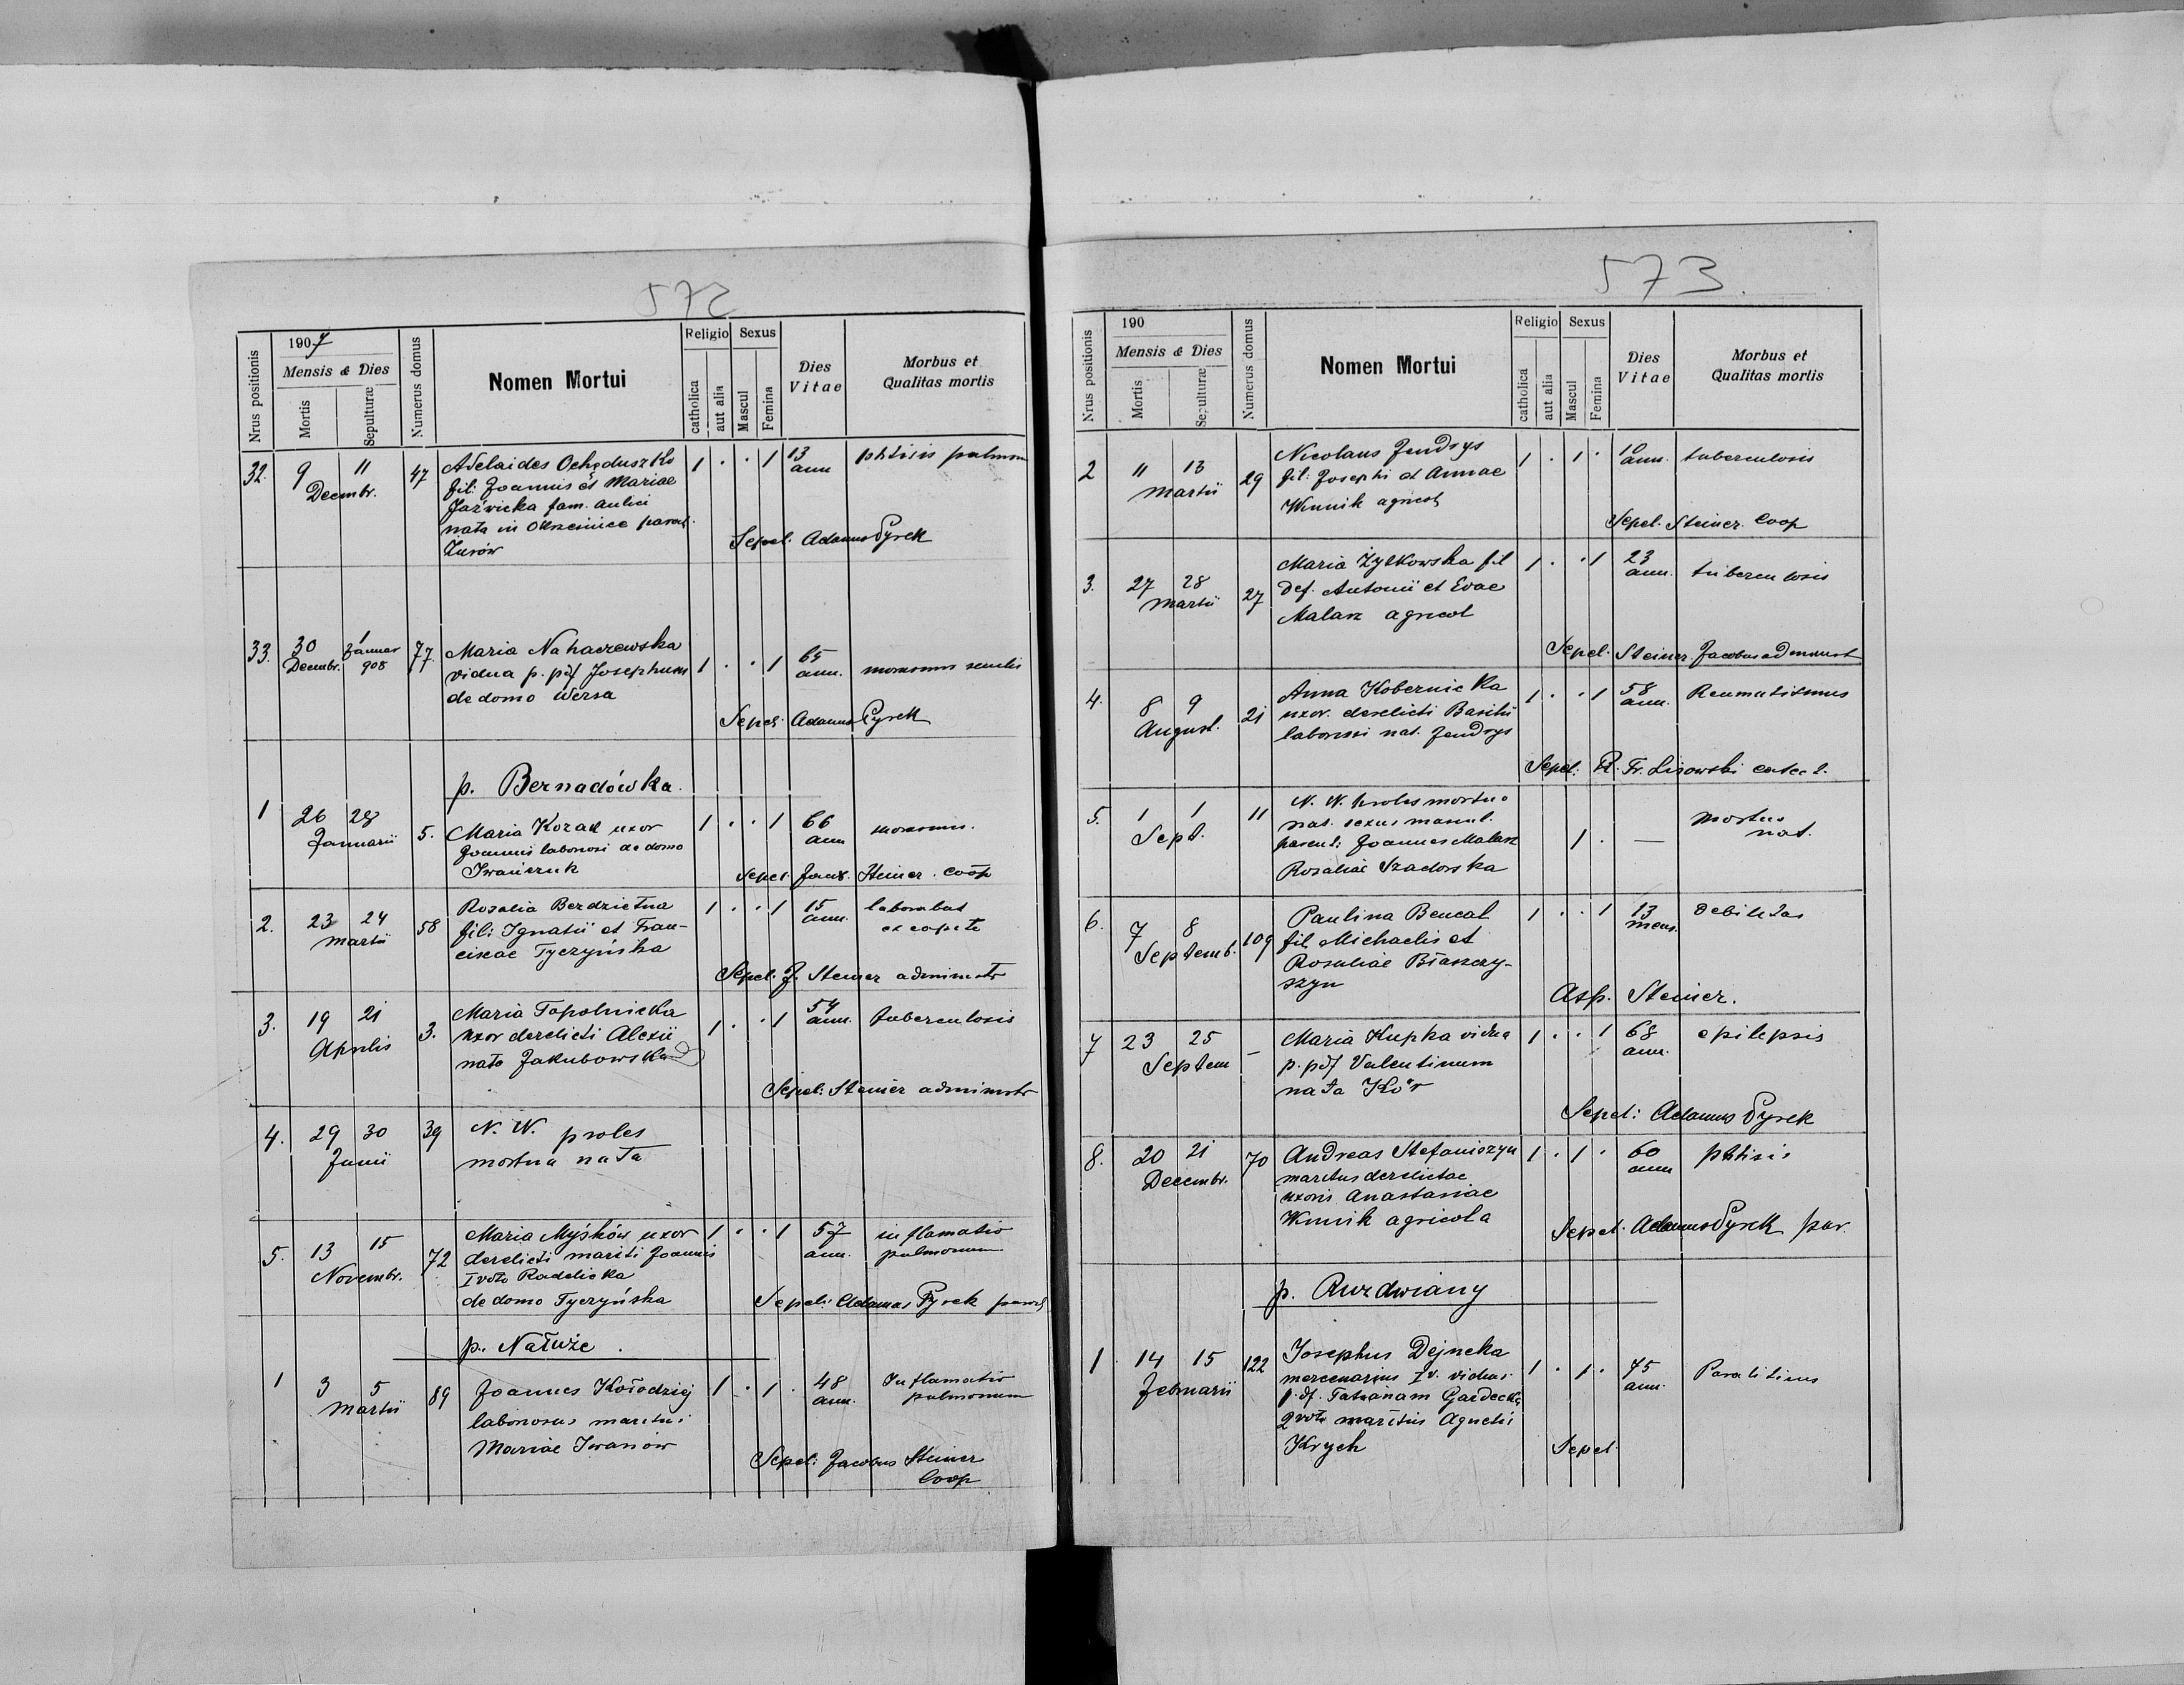 572
1907
Nrus positionis
Mensis & Dies
Mortis
Sepulturæ
Numerus domus
Nomen Mortui
Religio
catholica
aut alia
Sexus
Mascul
Femina
Dies Vitae
Morbus et Qualitas mortis
32. 9 11 Decembr. 47 Adelaides Ochęduszko 1 . . 1 13 ann phtisis pulmon
fil: Joannis et Mariae
Jaźwicka fam. aulici
nata in paroch.
Żurów
Sepel. Adamus Pyrek
33. 30 Decembr. 1 Januar 908 77. Maria Nahaczewska
vidua p. pdf Josephum 1 . . 1 65 ann. senilis
de domo Wersa
Sepel: Adamus Pyrek
p. Bernadówka.
1 26 28 Januarii 5. Maria Kozak uxor 1 . . 1 66 ann
Joannis laboriosi de domo
Iwańczuk
Sepel. Jacob. Steiner. coop
2. 23 24 Martii 58 Rosalia Berdzietna 1 . . 1 15 ann. laborabat ex capite
fil: Ignatii et Fran-
ciscae Tyczyńska
Sepel. J. Steiner administr
3. 19 21 Aprilis 3. Maria Topolnicka 1 . . 1 54 ann. tuberculosis
uxor derelicti Alexii
nata Jakubowska
Sepel: Steiner administr
4. 29 30 Junii 39 N. N. proles
mortua nata
5. 13 15 Novembr. 72 Maria Myśków uxor 1 . . 1 57 ann. inflamatio pulmonum
derelicti mariti Joannis
I voto Radelicka
de domo Tyczyńska
Sepel: Adamus Pyrek paroch
p. Natuże.
1 3 5 Martii 89 Joannes Kołodziej 1 . 1 . 48 ann. Inflamatio pulmonum
laboriosus maritus
Mariae Iwanów
Sepel: Jacobus Steiner
Coop
573.
190
Nrus positionis
Mensis & Dies
Mortis
Sepulturæ
Numerus domus
Nomen Mortui
Religio
catholica
aut alia
Sexus
Mascul
Femina
Dies Vitae
Morbus et Qualitas mortis
2 11 13 Martii 29 Nicolaus Jendrys 1 . 1 . ann. tuberculosis
fil: Josephi et Annae
Winnik agricol
Sepel. Steiner. Coop
3. 27 28 Martii 27 Maria Żytkowska fil 1 . . 1 23 ann. tuberculosis
def. Antonii et Evae
Malarz agricol
Sepel. Steiner. Jacobus administ
4. 8 9 August. 21 Anna Kobernicka 1 . . 1 58 ann. Reumatismus
uxor. derelicti Basilii
laboriosi nat. Jendrys
Sepel: R. Fr. Lisowski
5. 1 1 Sept. 11 N. N. proles mortuo
nat. sexus mascul. 1 . — Mortuus nat.
parent: Joannes Malarz
Rosaliae Szadorska
6. 7 8 Septemb. 109 Paulina Bencal 1 . . 1 13 mens. debilitas
fil. Michaelis et
Rosaliae Błaszczy-
szyn
Asp. Steiner.
7 23 25 Septem — Maria Kupka vidua 1 . . 1 68 ann. epilepsis
p. pdf Valentinum
nata Kór
Sepel: Adamus Pyrek
8. 20 21 Decembr. 70 Andreas Stefaniszyn 1 . 1 . 60 ann phtisis
maritus derelictae
uxoris Anastasiae
Winnik agricola
Sepel. Adamus Pyrek par.
p. Ruzdwiany
1 14 15 Februarii 122 Josephus Dejneka 1 . 1 . 75 ann. Paralitius
mercenarius I v. viduus
p. df. Tatianam Gardecka
2 voto maritus Agnetis
Krych
Sepel